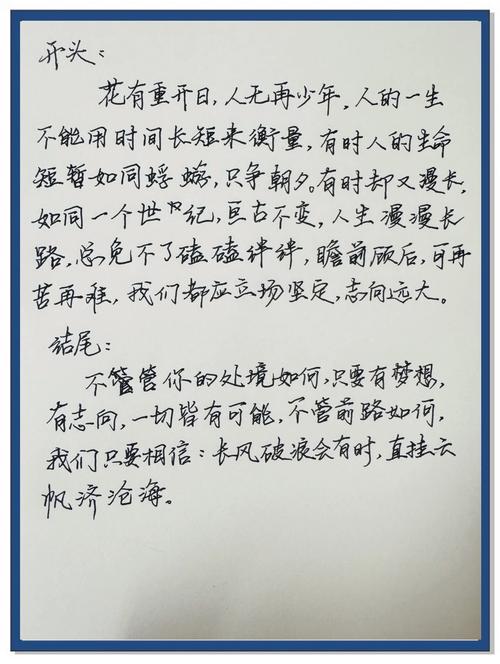 开头：
花有重开日，人无再少年，人的一生
不能用时间长短来衡量，有时人的生命
短暂如同蜉蝣，只争朝夕。有时却又漫长，
如同一个世纪，亘古不变，人生漫漫长
路，总免不了磕磕绊绊，瞻前顾后，可再
苦再难，我们都应立场坚定，志向远大。
结尾：
不管管你的处境如何，只要有梦想，
有志向，一切皆有可能，不管前路如何，
我们只要相信：长风破浪会有时，直挂云
帆济沧海。